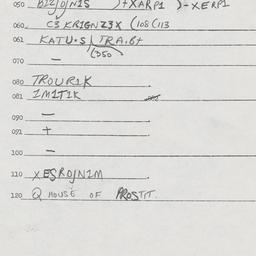 050 BIZJOJNIS )+XARP1 )-XERP1
060 C3 KRIGNZ3X (108 (113
061 KATU·S ( TRAIB+
(350
070 —
080 TROUR1K
081 IMIT1K
090 —
091 +
100 —
110 XESROJNIM
120 Q HOUSE OF PROSTIT.